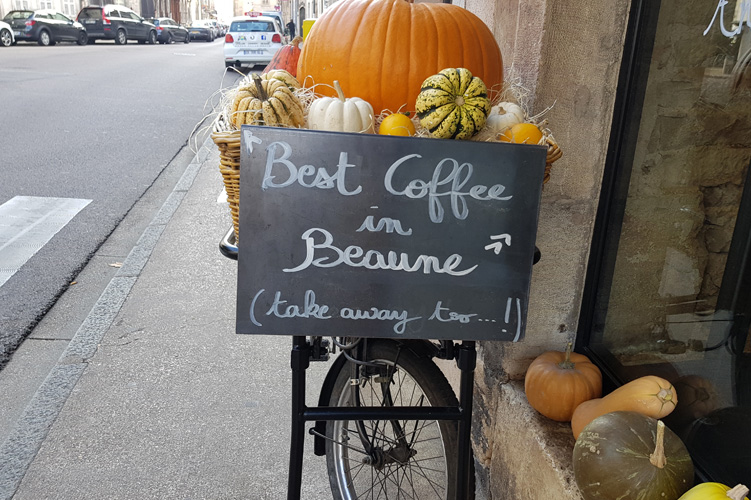 Best Coffee
in
Beaune
(take away too...!)